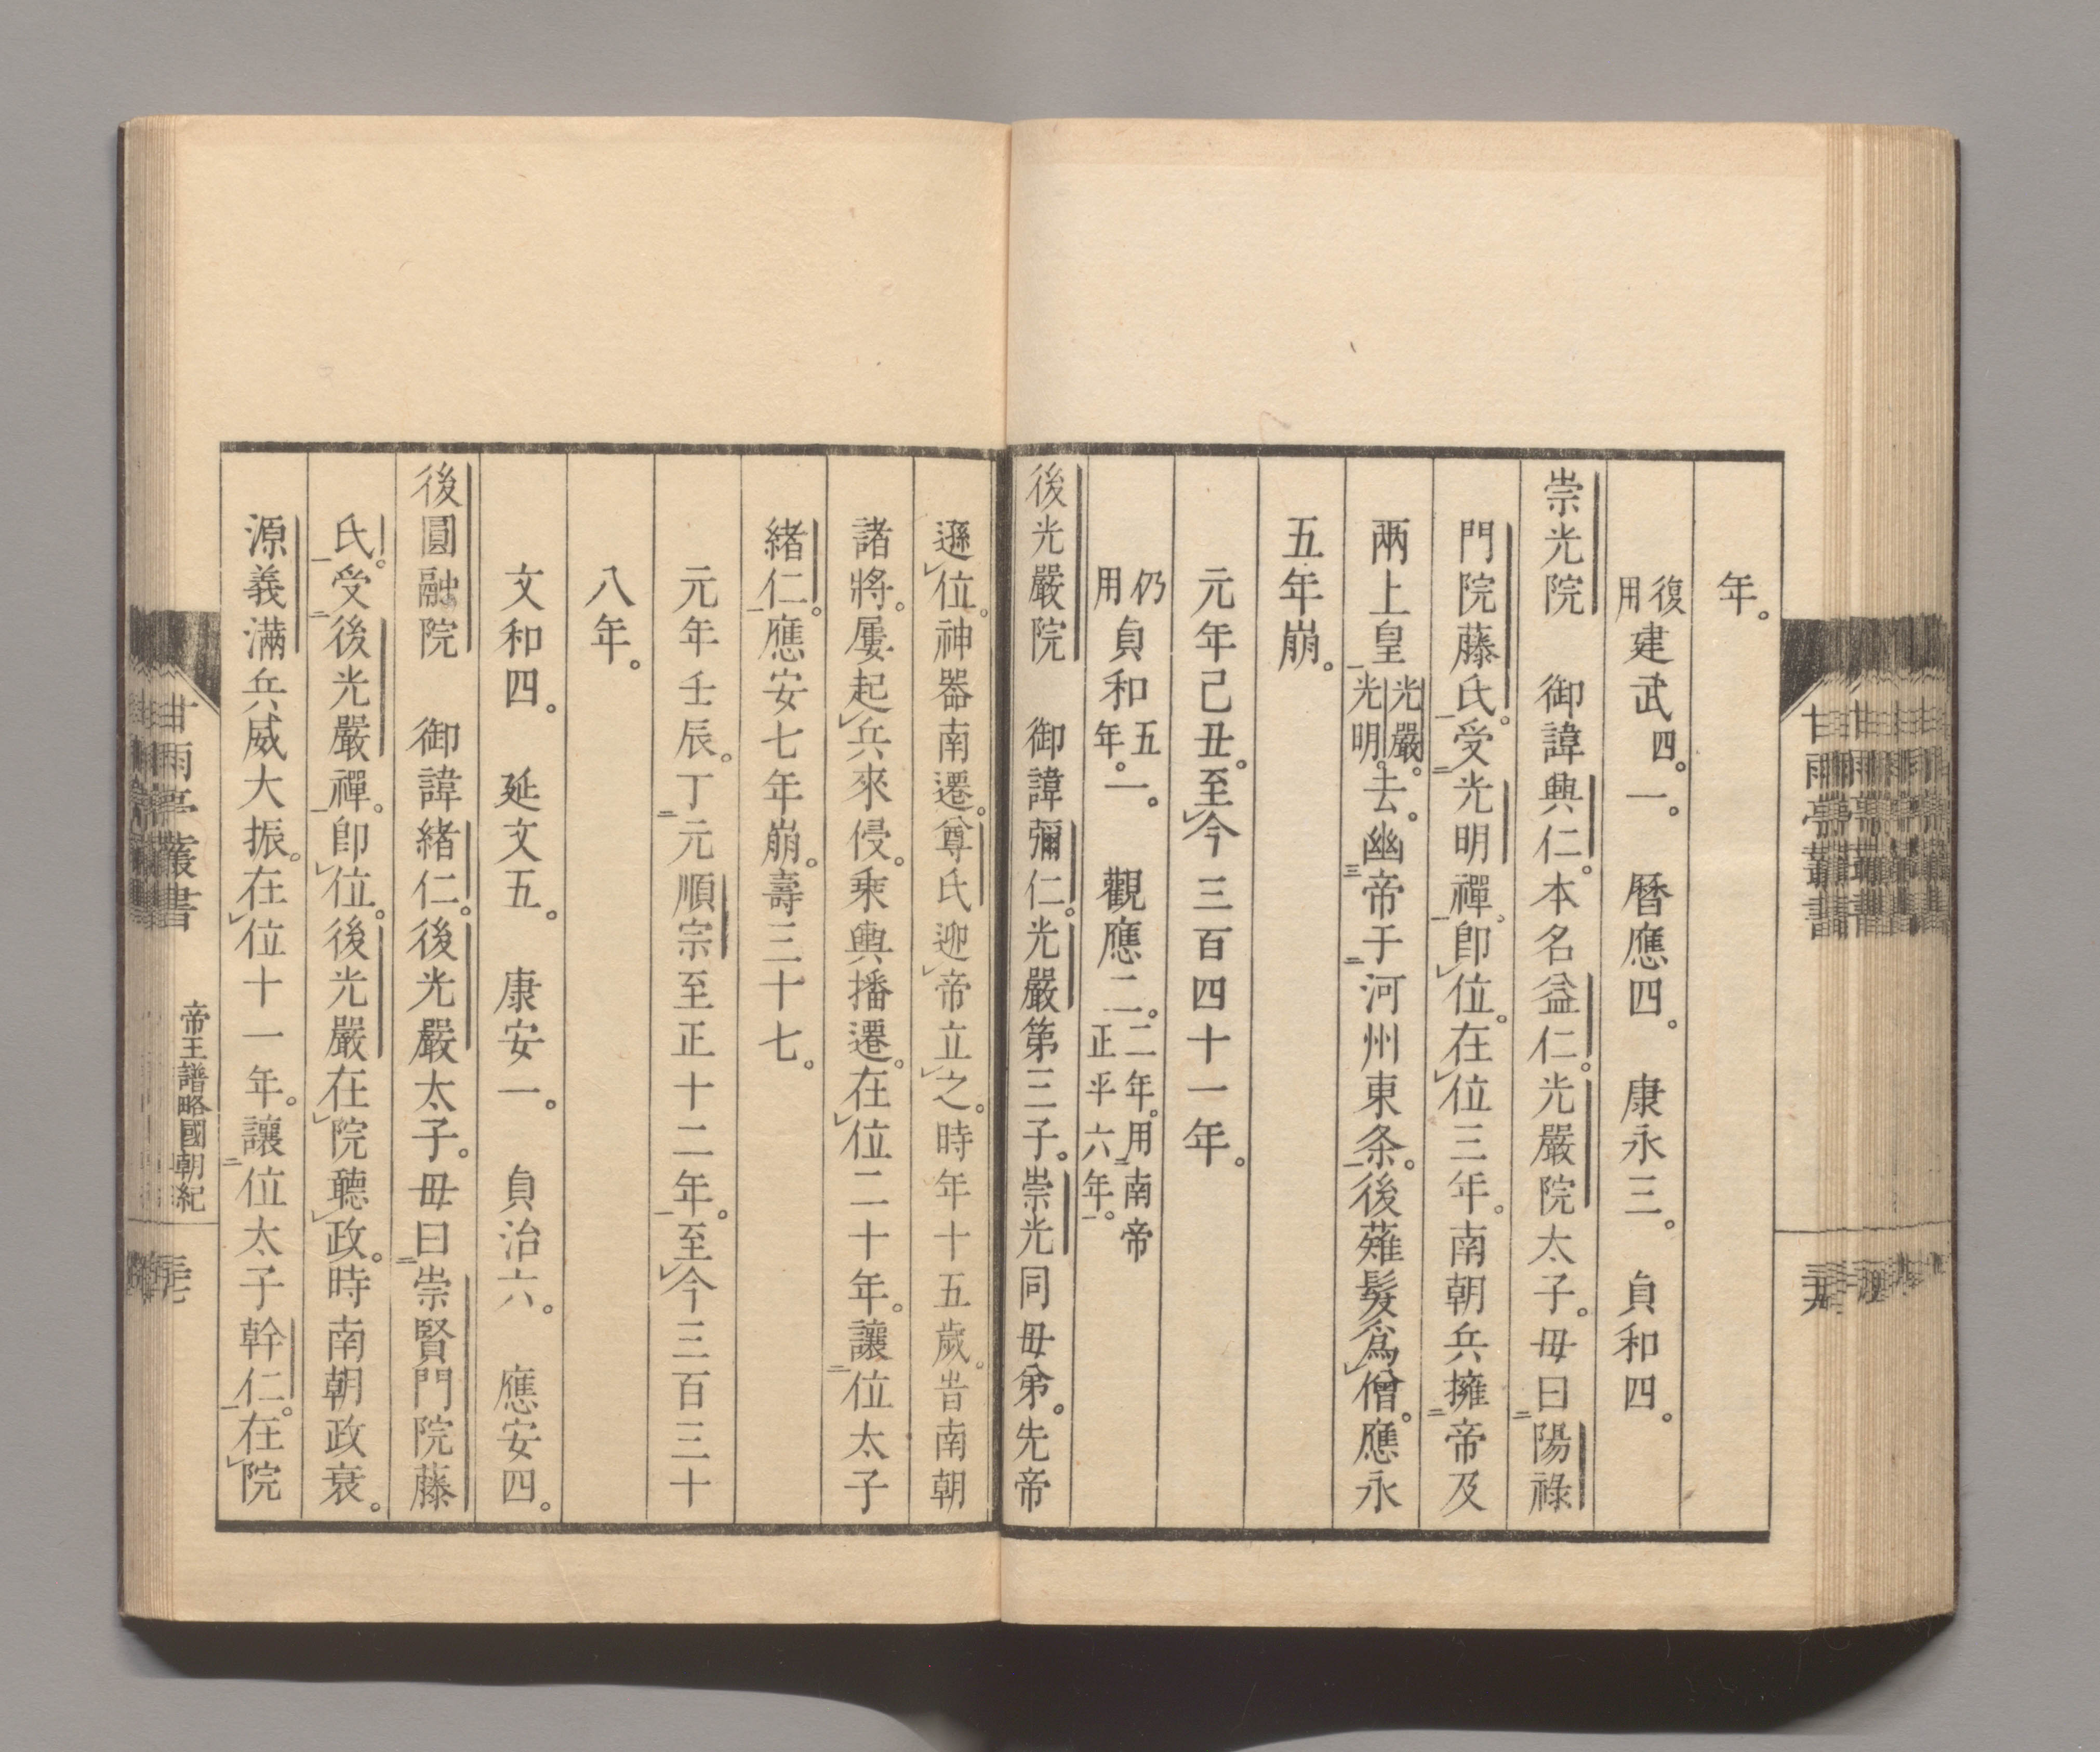 年。
復用建武四。一。　曆應四。　康永三。　貞和四。
崇光院　御諱興仁。本名益仁。光嚴院太子。毋曰陽祿
門院藤氏。受光明禪。卽位。在位三年。南朝兵擁帝及
兩上皇光嚴。光明。去。幽帝于河州東条。後薙髮爲僧。應永
五年崩。
元年己丑。至今三百四十一年。
仍用貞和五年。一。　觀應二。二年。用南帝正平六年。
後光嚴院　御諱彌仁。光嚴第三子。崇光同毋弟。先帝
遜位。神器南遷。尊氏迎帝立之。時年十五歲。昔南朝
諸將。屢起兵來侵。乘輿播遷。在位二十年。讓位太子
緒仁。應安七年崩。壽三十七。
元年壬辰。丁元順宗至正十二年。至今三百三十
八年。
文和四。　延文五。　康安一。　貞治六。　應安四。
後圓融院　御諱緒仁。後光嚴太子。毋曰崇賢門院藤
氏。受後光嚴禪。卽位。後光嚴在院聽政。時南朝政衰。
源義滿兵威大振。在位十一年。讓位太子幹仁。在院
甘雨亭叢書
帝王譜略國朝紀